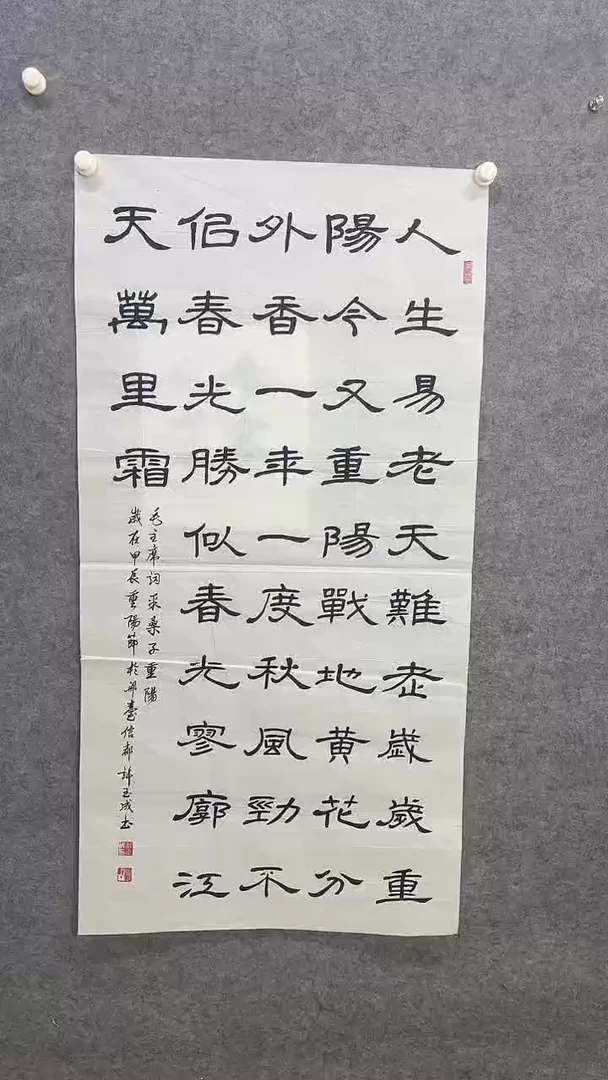 人生易老天難老歲歲重
陽今又重陽戰地黄花分
外香一年一度秋風勁不
佀春光勝似春光寥廓江
天萬里霜
毛主席词采桑子重陽
歲在甲辰重陽節於邢臺信都許玉成书